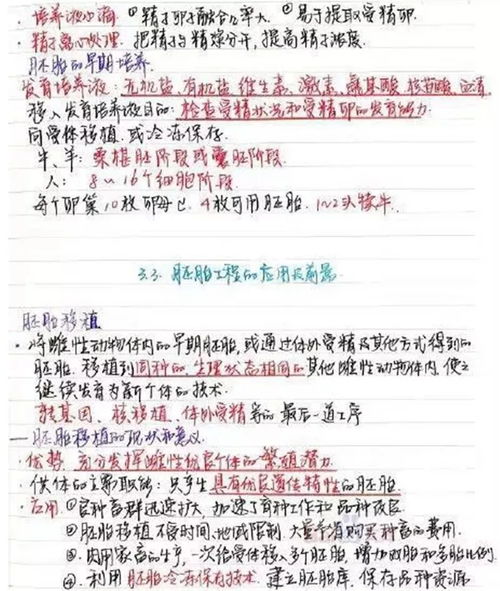 ·培养液心滴 ①精子卵子融合几率大. ②易于提取受精卵.
·精子离心处理. 把精子与精燥分开, 提高精子浓度.
胚胎的早期培养.
发育培养液: 无机盐 有机盐 维生素. 激素. 氨基酸. 核苷酸. 血清.
移入发育培养液目的: 检查受精状况和受精卵的发育能力.
向受体移植. 或冷冻保存.
牛、羊: 桑椹胚阶段或囊胚阶段.
人: 8~16个细胞阶段.
每个卵巢10枚卵母C. 4枚可用胚胎. 1~2头犊牛.
3.3. 胚胎工程的应用及前景.
胚胎移植
·将雌性动物体内的早期胚胎, 或通过体外受精及其他方式得到的
胚胎. 移植到同种的. 生理状态相同的其他雌性动物体内. 使之
继续发育为新个体的技术.
转基因、核移植、体外受精等的最后一道工序
一胚胎移植的现状和意义.
·优势. 充分发挥雌性优良个体的繁殖潜力.
·供体的主要职能: 只产生具有优良遗传特性的胚胎.
·应用. ①良种畜群迅速扩大, 加速了育种工作和品种改良
②胚胎移植 不受时间、地域限制. 大量节省购买种畜的费用.
③. 肉用家畜的生产, 一次给受体移入多个胚胎, 增加双胎和多胎比例.
④. 利用胚胎冷冻保存技术. 建立胚胎库. 保存品种资源